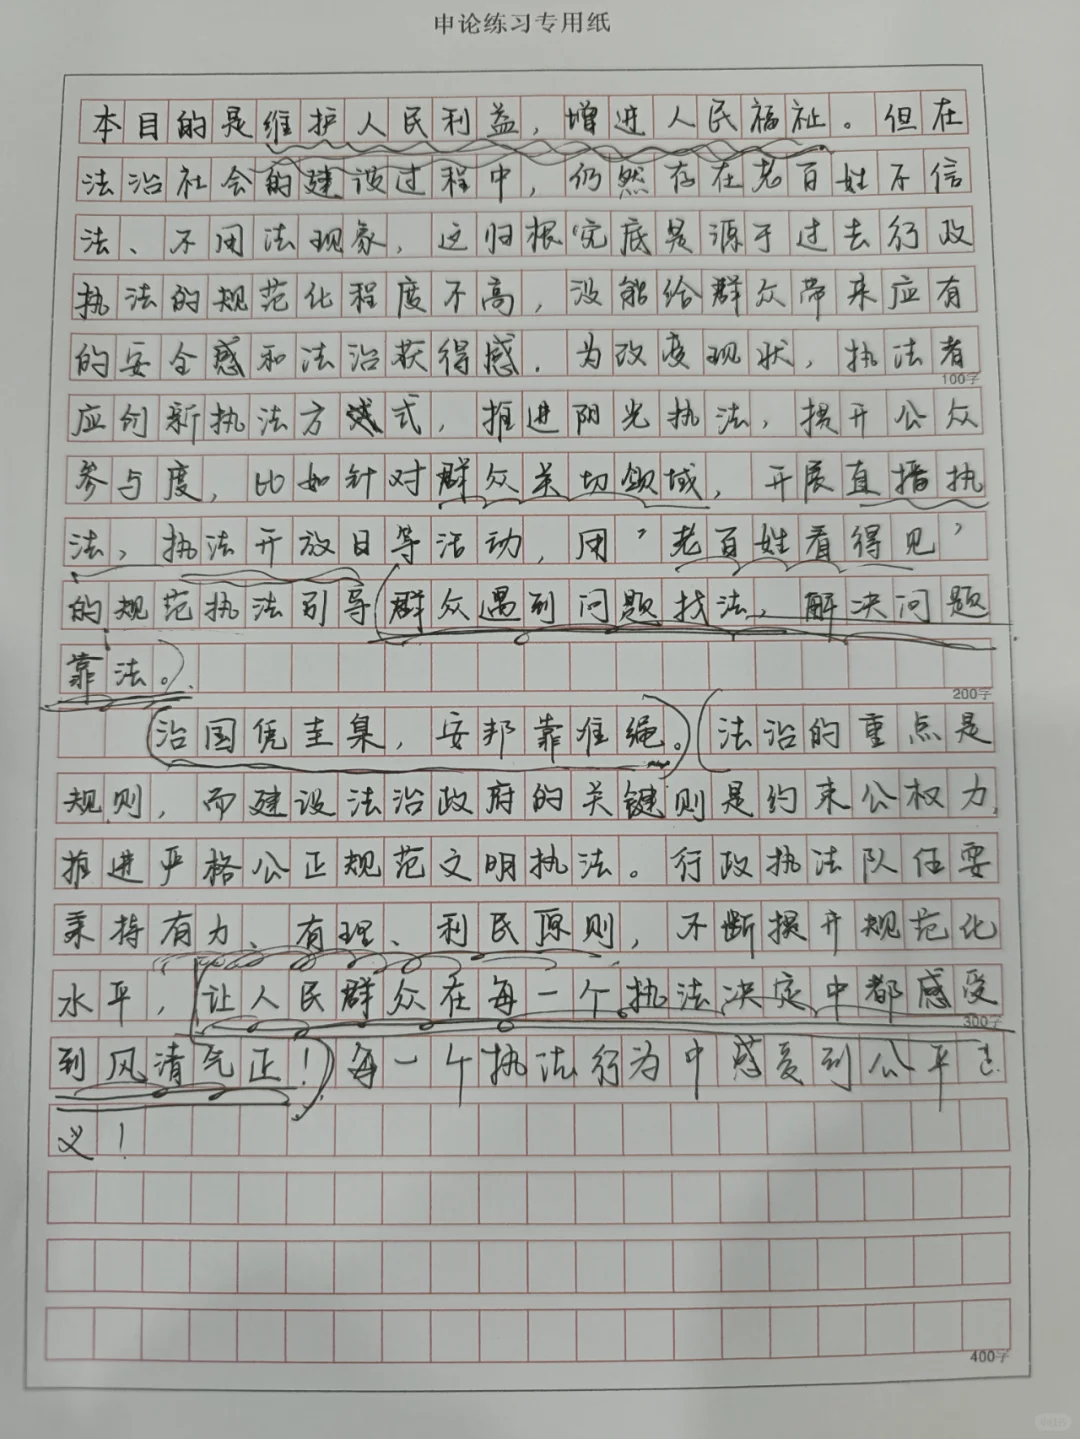 申论练习专用纸
本目的是维护人民利益，增进人民福祉。但在
法治社会的建设过程中，仍然存在老百姓不信
法、不用法现象，这归根究底是源于过去行政
执法的规范化程度不高，没能给群众带来应有
的安全感和法治获得感。为改变现状，执法者
100字
应创新执法方式，推进阳光执法，提升公众
参与度，比如针对群众关切领域，开展直播执
法、执法开放日等活动，用'老百姓看得见'
的规范执法引导群众遇到问题找法、解决问题
靠法。
200字
治国凭圭臬，安邦靠准绳。法治的重点是
规则，而建设法治政府的关键则是约束公权力，
推进严格公正规范文明执法。行政执法队伍要
秉持有力、有理、利民原则，不断提升规范化
水平，让人民群众在每一个执法决定中都感受
300字
到风清气正！每一个执法行为中感受到公平正
义！
400字